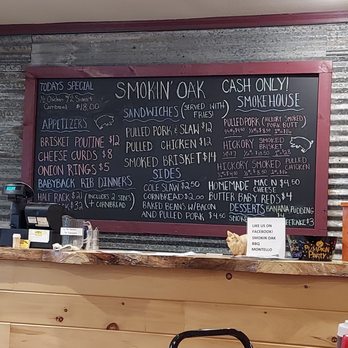 TODAY'S SPECIAL
½ Chicken w/2 Sides &
Cornbread $18.00
SMOKIN' OAK
CASH ONLY!
APPETIZERS
BRISKET POUTINE $12
CHEESE CURDS $8
ONION RINGS $5
BABYBACK RIB DINNERS
HALF RACK $21
$32
(INCLUDES 2 SIDES
+ CORNBREAD)
SANDWICHES (SERVED WITH FRIES!)
PULLED PORK & SLAW $12
PULLED CHICKEN $12
SMOKED BRISKET $14
SIDES
COLE SLAW $2.50
CORNBREAD $2.00
BAKED BEANS W/BACON
AND PULLED PORK $4.00
SMOKEHOUSE
PULLED PORK (HICKORY SMOKED PORK BUTT)
HICKORY SMOKED BRISKET
HICKORY SMOKED PULLED CHICKEN
HOMEMADE MAC N CHEESE $4.50
BUTTER BABY REDS $4
DESSERTS BANANA PUDDING
LIKE US ON
FACEBOOK!
SMOKIN OAK
BBQ
MONTELLO